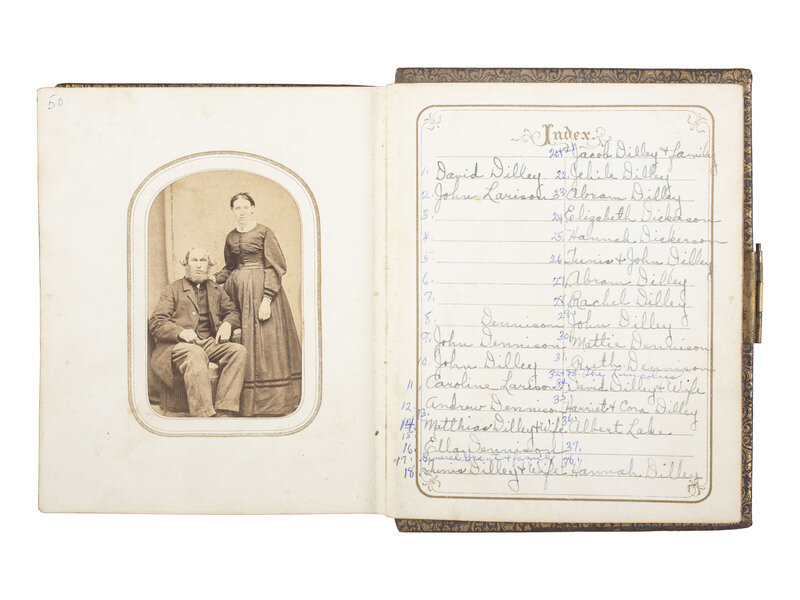 50
Index.
20+21 Jacob Dilley & family
1. David Dilley 22 Jehile Dilley
2. John Larison 23 Abram Dilley
3. 24 Elizabeth Dickerson
4. 25 Hannah Dickerson
5. 26 Tunis & John Dilley
6. 27 Abram Dilley
7. 28 Rachel Dilley
8. Dennison 29 John Dilley
9. John Dennison 30 Mattie Dennison
10. John Dilley 31. Ruth Dennison
32+33
11. Caroline Larison 34. David Dilley & Wife
12. Andrew Dennison 35. Harriet & Cora Dilley
13.
14. Matthias Dilley & Wife 36. Albert Lake
15.
16. Ella Dennison 37.
17. General Grant & family
18. Tunis Dilley & Wife Hannah Dilley